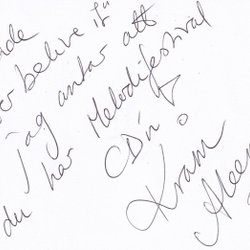 ade
er belive it"
jag antar att
du har Melodifestival
CD'n!
Kram